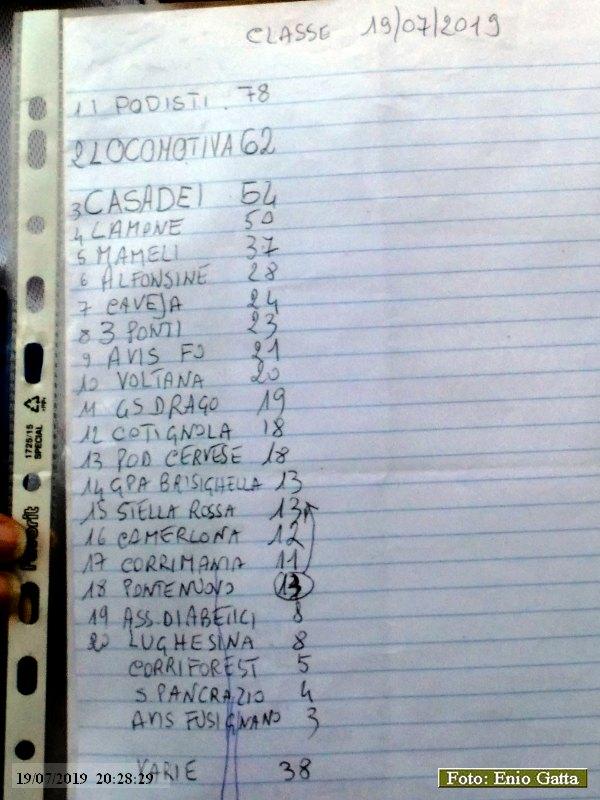 CLASSE 19/07/2019
1 I PODISTI . 78
2 LOCOMOTIVA 62
3 CASADEI 54
4 LAMONE 50
5 MAMELI 37
6 ALFONSINE 28
7 CAVEJA 24
8 3 PONTI 23
9 AVIS FO 21
10 VOLTANA 20
11 GS DRAGO 19
12 COTIGNOLA 18
13 POD CERVESE 18
14 GPA BRISIGHELLA 13
15 STELLA ROSSA 13
16 CAMERLONA 12
17 CORRIMANIA 11
18 PONTENUOVO 13
19 ASS. DIABETICI 8
20 LUGHESINA 8
CORRIFOREST 5
S PANCRAZIO 4
AVIS FUSIGNANO 3
VARIE 38
1725/15
SPECIAL
Favorit
19/07/2019 20:28:29
Foto: Enio Gatta